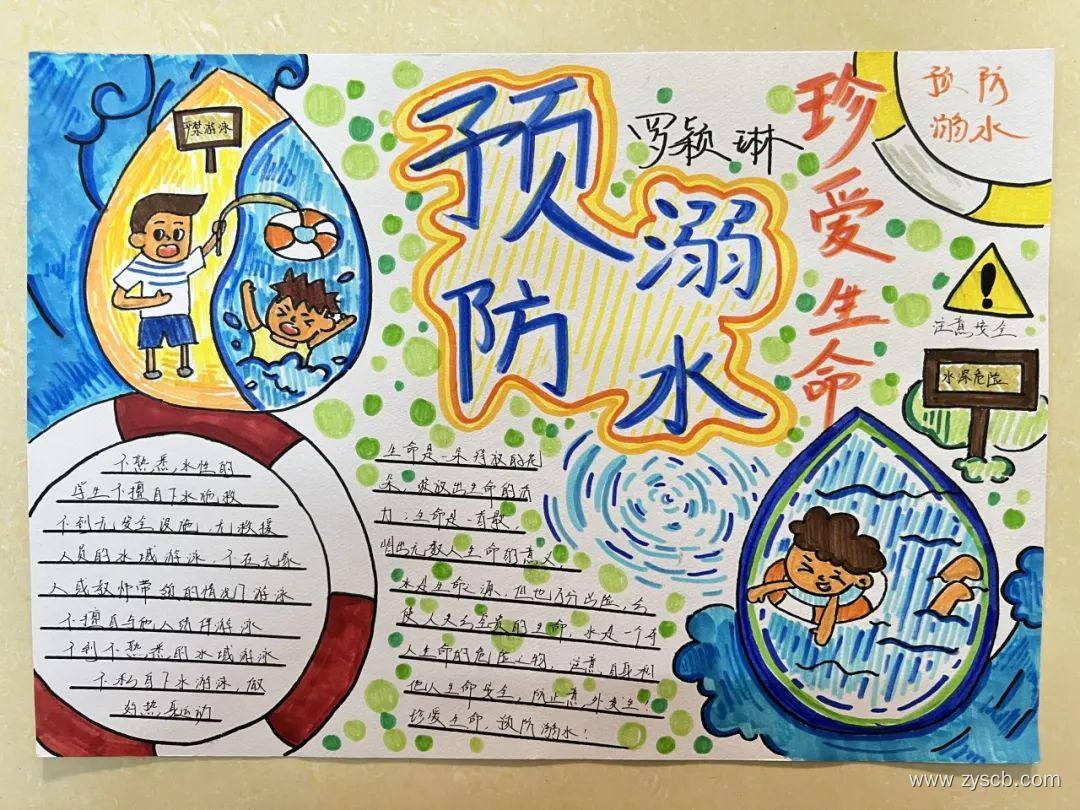 严禁游泳
预防溺水
罗颖琳
珍爱生命
预防
溺水
注意安全
水深危险
不熟悉水性的
学生不擅自下水施救
不到无安全设施、无救援
人员的水域游泳,不在无家
人或教师带领的情况下游泳
不擅自与他人结伴游泳
不到不熟悉的水域游泳
不私自下水游泳,做
好热身运动
生命是一朵绽放的花
朵,绽放出生命的活
力;生命是一首歌,
唱出无数人生命的意义,
水是生命之源,但也十分凶险,会
使人失去宝贵的生命,水是一个夺
人生命的危险人物,注意自身和
他人生命安全,防止意外发生,
珍爱生命,预防溺水!
www.zyscb.com